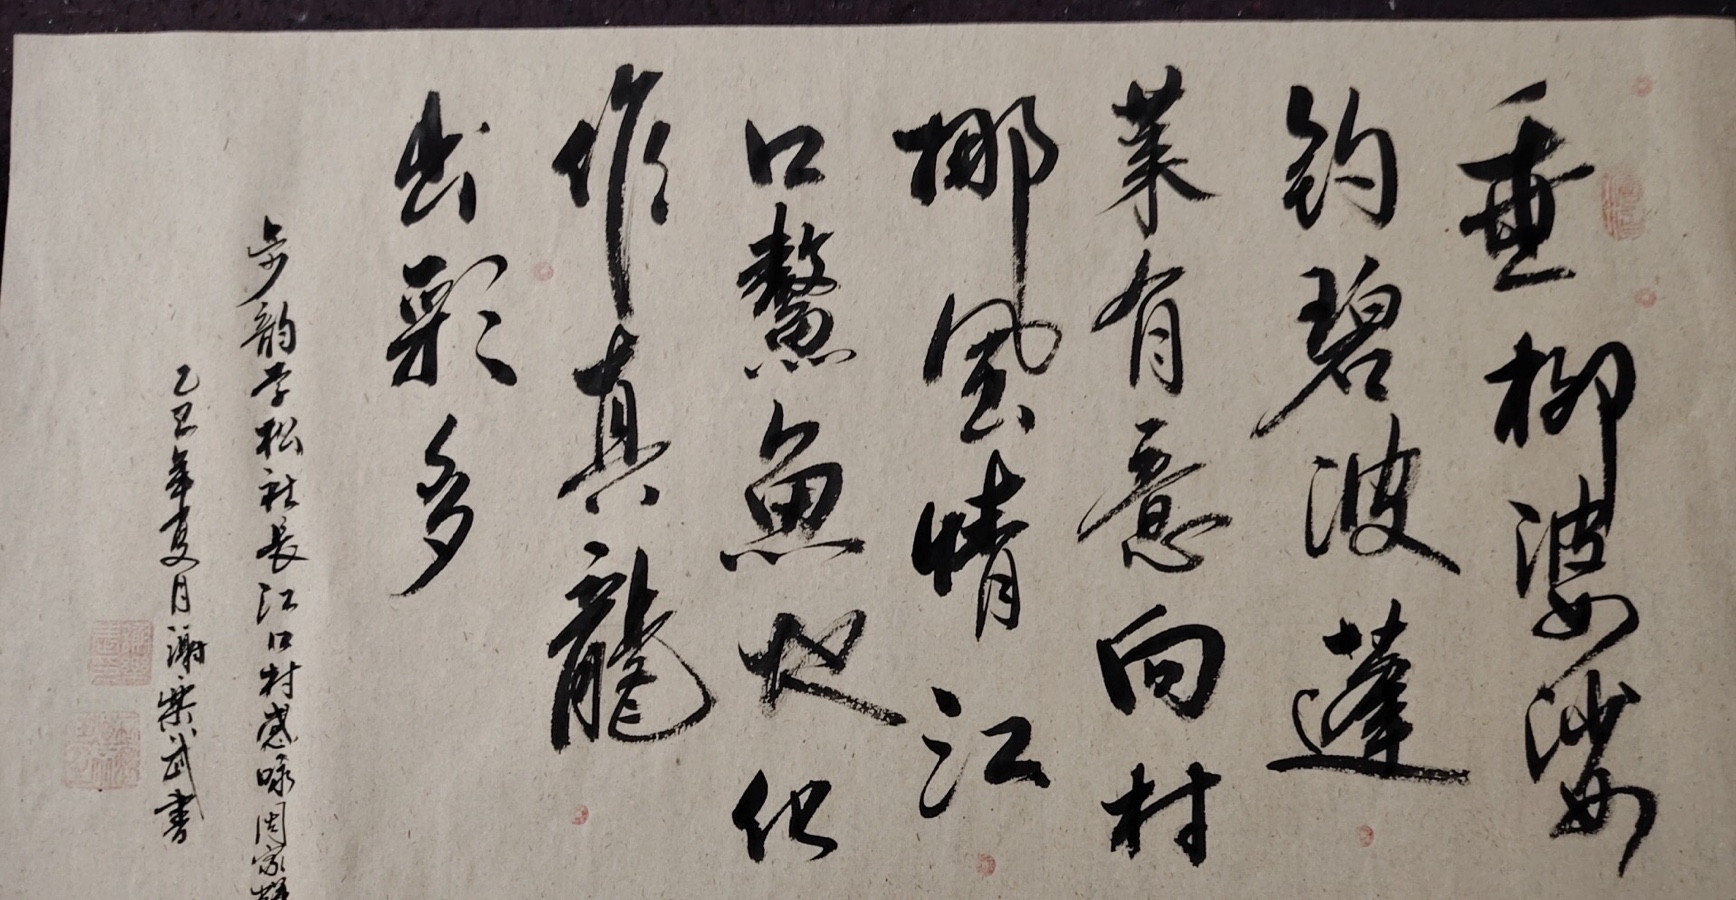 垂柳婆娑
钓碧波蓬
莱有意向村
挪风情江
口鳌鱼地化
作真龙
出彩多
步韵学松社长江口村感咏周家辉
乙巳年夏月谢崇武书